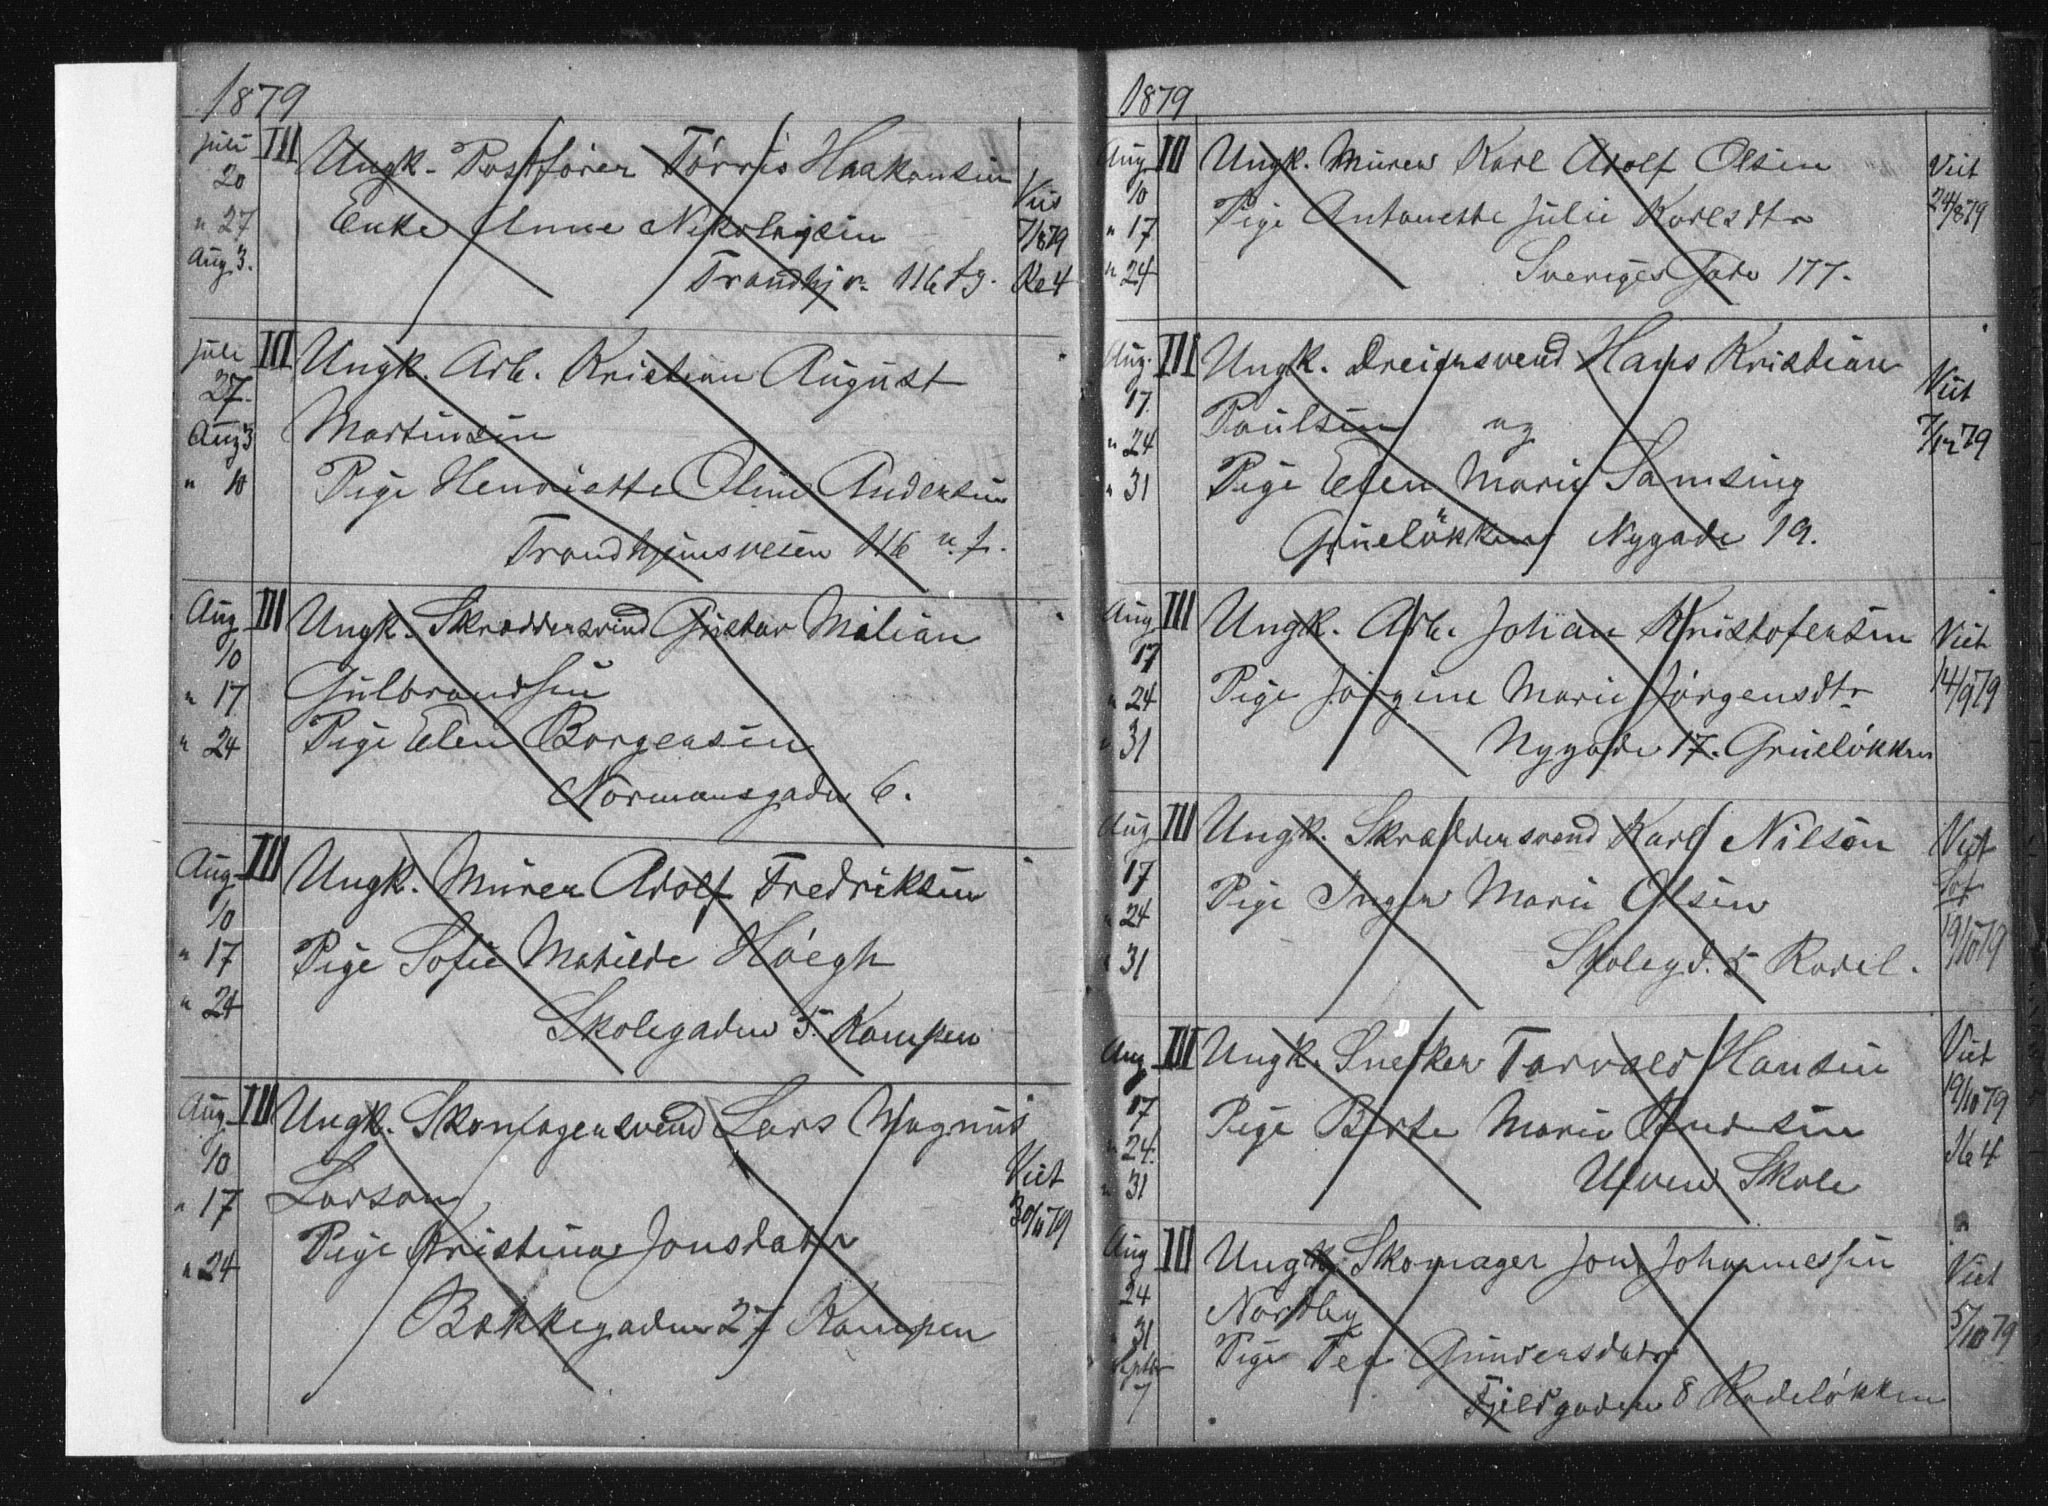 1879
Juli 20 " 27 Aug 3. III Ungk. Postfører Tørris Haakonsen
Enke Anne Nikolajsen Viet 7/8 79
Trondhj v. 116 f g. Re 4
Juli 27. Aug 3 " 10 III Ungk. Arb. Kristian August
Martinsen
Pige Henriette Oline Andersen
Trondhjemsveien 116 n. f.
Aug 10 " 17 " 24 III Ungk. Skræddersvend Gustav Milian
Gulbrandsen
Pige Elen Borgersen
Normansgaden 6.
Aug 10 " 17 " 24 III Ungk. Murer Adolf Fredriksen
Pige Sofie Matilde Høegh
Skolegaden 5. Kampen
Aug 10 " 17 " 24 III Ungk. Skomagersvend Lars Magnus
Larson Viet 30/11 79
Pige Kristina Jonsdatr
Bækkegaden 27 Kampen
1879
Aug 10 " 17 " 24 III Ungk. Murer Karl Adolf Olsen Viet 24/8 79
Pige Antonette Julie Karlsdtr
Sveriges Gade 177.
Aug. 17. " 24 " 31 III Ungk. Dreiersvend Hans Kristian
Paulsen og Viet 7/12 79
Pige Elen Marie Samsing
Grüneløkken Nygade 19.
Aug 17 " 24 " 31 III Ungk. Arb. Johan Kristofersen Viet 14/9 79
Pige Jørgine Marie Jørgensdtr
Nygade 17. Grüneløkken
Aug 17 " 24 " 31 III Ungk. Skræddersvend Karl Nilsen Viet
Pige Inger Marie Olsen 19/10 79
Skolegd. 5 Rodel.
Aug 17 " 24. " 31 III Ungk. Snekker Torvald Hansen Viet 19/10 79
Pige Berte Marie Andersen
Ulven Skole
Aug 24 " 31 Septbr 7 III Ungk. Skomager Jon Johannessen Viet 5/10 79
Nordby
Pige Tea Gundersdatr
Fjeldgaden 8 Rodeløkken